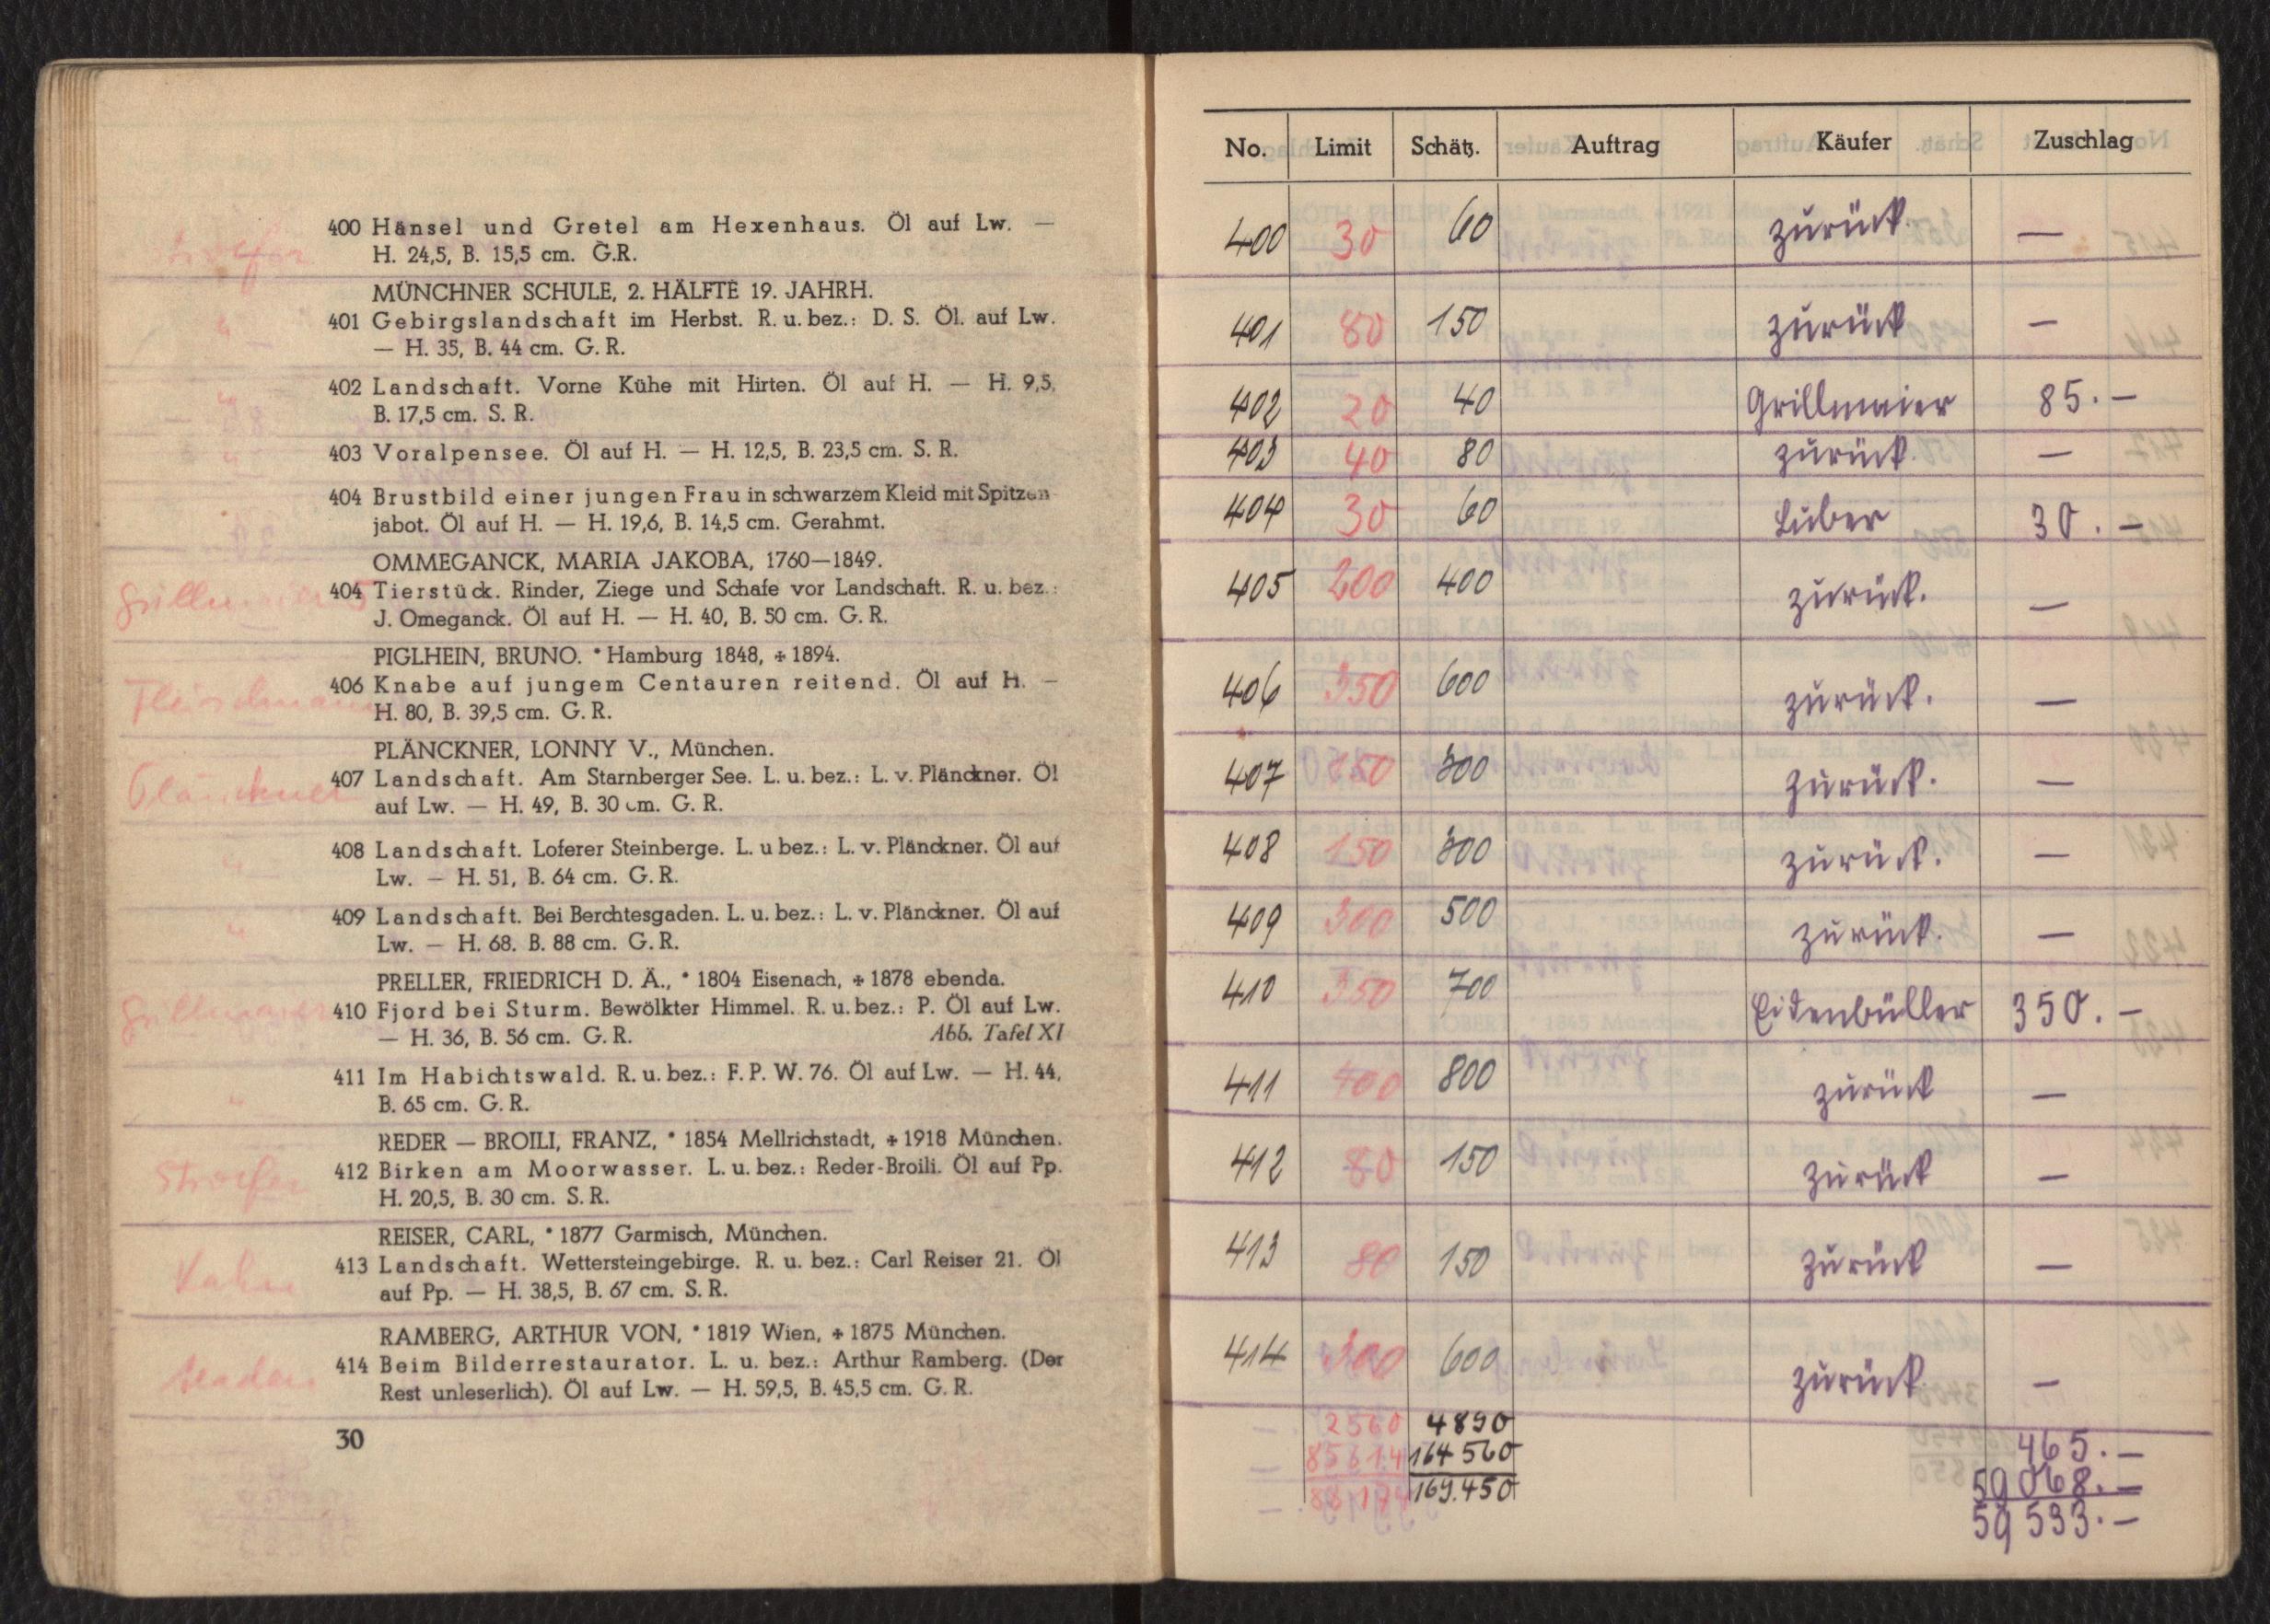 400 Hänsel und Gretel am Hexenhaus. Öl auf Lw. —
H. 24,5, B. 15,5 cm. G.R.
MÜNCHNER SCHULE, 2. HÄLFTE 19. JAHRH.
" 401 Gebirgslandschaft im Herbst. R. u. bez.: D. S. Öl. auf Lw.
— H. 35, B. 44 cm. G. R.
" 402 Landschaft. Vorne Kühe mit Hirten. Öl auf H. — H. 9,5,
B. 17,5 cm. S. R.
" 403 Voralpensee. Öl auf H. — H. 12,5, B. 23,5 cm. S. R.
404 Brustbild einer jungen Frau in schwarzem Kleid mit Spitzen
jabot. Öl auf H. — H. 19,6, B. 14,5 cm. Gerahmt.
OMMEGANCK, MARIA JAKOBA, 1760—1849.
Grillmaier 404 5 Tierstück. Rinder, Ziege und Schafe vor Landschaft. R. u. bez.:
J. Omeganck. Öl auf H. — H. 40, B. 50 cm. G. R.
PIGLHEIN, BRUNO. * Hamburg 1848, + 1894.
Fleischmann 406 Knabe auf jungem Centauren reitend. Öl auf H. —
H. 80, B. 39,5 cm. G. R.
PLÄNCKNER, LONNY V., München.
Plänckner 407 Landschaft. Am Starnberger See. L. u. bez.: L. v. Plänckner. Öl
auf Lw. — H. 49, B. 30 cm. G. R.
" 408 Landschaft. Loferer Steinberge. L. u bez.: L. v. Plänckner. Öl auf
Lw. — H. 51, B. 64 cm. G. R.
" 409 Landschaft. Bei Berchtesgaden. L. u. bez.: L. v. Plänckner. Öl auf
Lw. — H. 68. B. 88 cm. G. R.
PRELLER, FRIEDRICH D. Ä., * 1804 Eisenach, + 1878 ebenda.
Grillmaier 410 Fjord bei Sturm. Bewölkter Himmel. R. u. bez.: P. Öl auf Lw.
— H. 36, B. 56 cm. G. R. Abb. Tafel XI
" 411 Im Habichtswald. R. u. bez.: F. P. W. 76. Öl auf Lw. — H. 44,
B. 65 cm. G. R.
REDER — BROILI, FRANZ, * 1854 Mellrichstadt, + 1918 München.
412 Birken am Moorwasser. L. u. bez.: Reder-Broili. Öl auf Pp.
H. 20,5, B. 30 cm. S. R.
REISER, CARL, * 1877 Garmisch, München.
413 Landschaft. Wettersteingebirge. R. u. bez.: Carl Reiser 21. Öl
auf Pp. — H. 38,5, B. 67 cm. S. R.
RAMBERG, ARTHUR VON, * 1819 Wien, + 1875 München.
414 Beim Bilderrestaurator. L. u. bez.: Arthur Ramberg. (Der
Rest unleserlich). Öl auf Lw. — H. 59,5, B. 45,5 cm. G. R.
30
No. Limit Schätz. Auftrag Käufer Zuschlag
400 30 60 zurück. —
401 80 150 zurück —
402 20 40 Grillmaier 85.—
403 40 80 zurück. —
404 30 60 Luber 30.—
405 200 400 zurück. —
406 350 600 zurück. —
407 150 300 zurück. —
408 150 300 zurück. —
409 300 500 zurück. —
410 350 700 Eidenbüller 350.—
411 400 800 zurück —
412 80 150 zurück —
413 80 150 zurück —
414 300 600 zurück —
2560 4890 465.—
85614 164560 59068.—
88174 169.450 59533.—